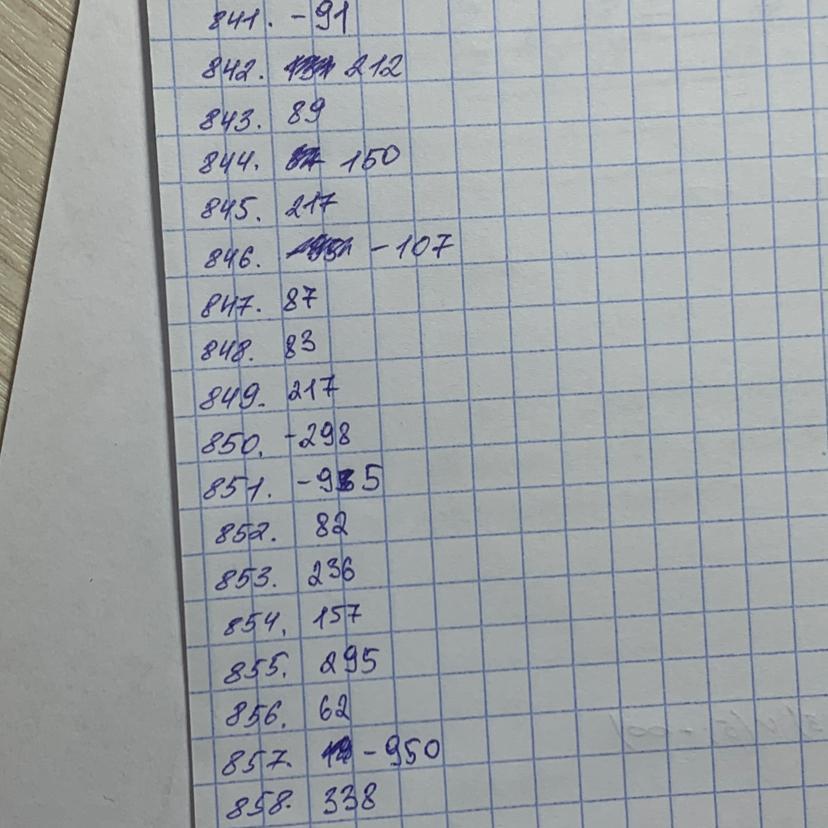 841. -91
842. 212
843. 89
844. 150
845. 217
846. -107
847. 87
848. 83
849. 217
850. -298
851. -935
852. 82
853. 236
854. 157
855. 295
856. 62
857. -950
858. 338